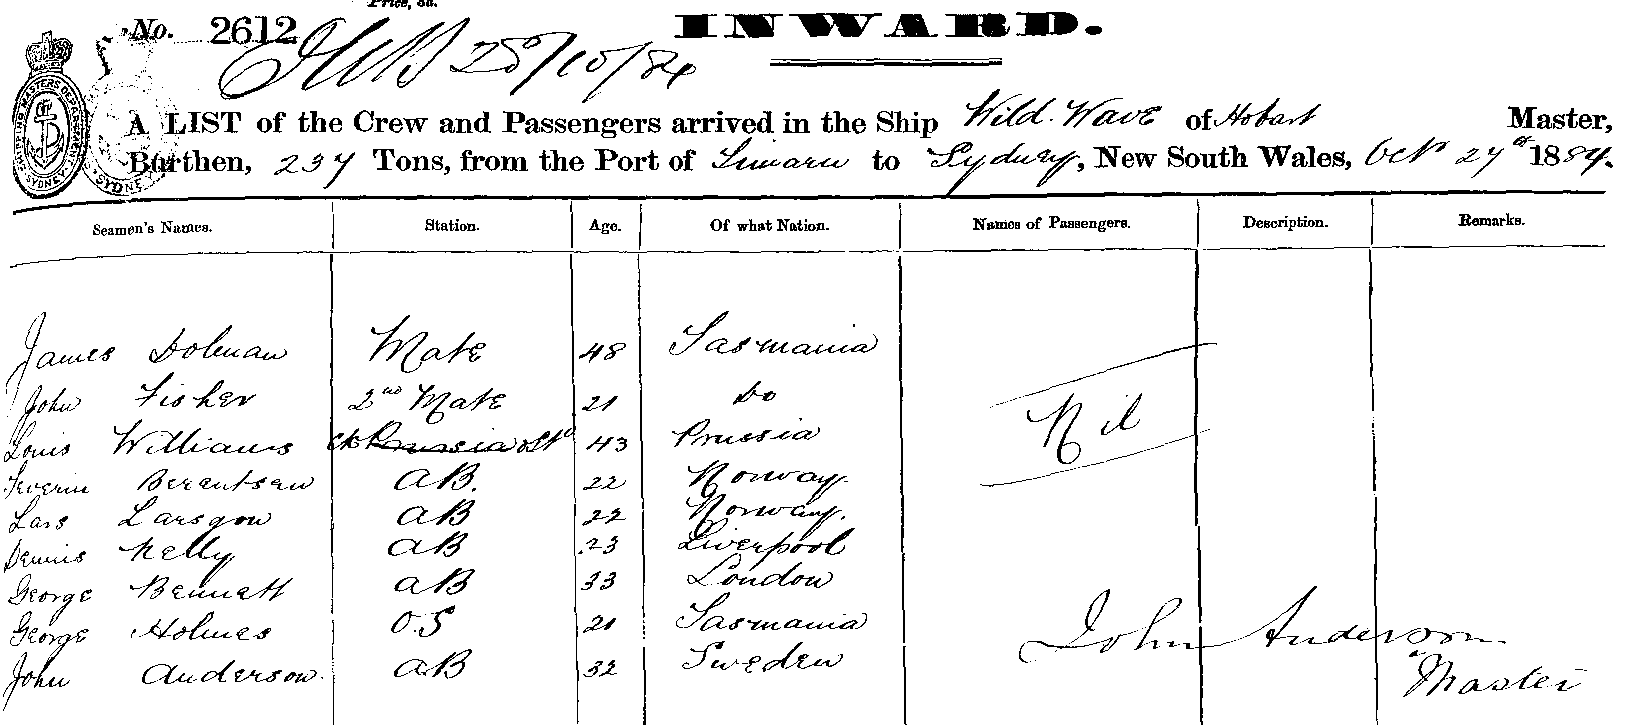 Price, 3d.
No. 2612 INWARD.
28/10/84
A LIST of the Crew and Passengers arrived in the Ship Wild Wave of Hobart Master,
Burthen, 237 Tons, from the Port of Timaru to Sydney, New South Wales, Oct 27th 1884.
Seamen's Names. Station. Age. Of what Nation. Names of Passengers. Description. Remarks.
James Dolman Mate 48 Tasmania
John Fisher 2nd Mate 21 Do
Nil
Louis Williams Ck & Std 43 Prussia
Severin Berentsen AB. 22 Norway
Lars Larsgon AB 22 Norway.
Dennis Kelly AB 23 Liverpool
George Bennett AB 33 London
George Holmes O.S 21 Tasmania
John Anderson
John Anderson AB 32 Sweden
Master